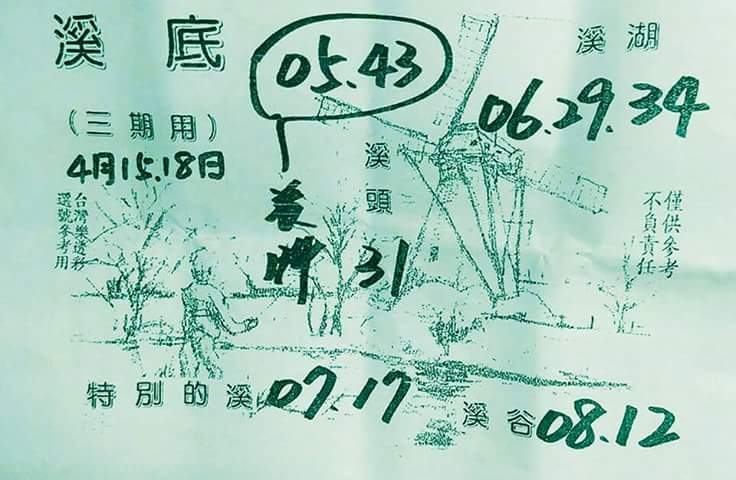 溪底
05.43
溪湖
06.29.34
(三期用)
4月15.18日
台灣樂透彩
選號參考用
溪頭
31
僅供參考
不負責任
特別的溪
07.17
溪谷
08.12